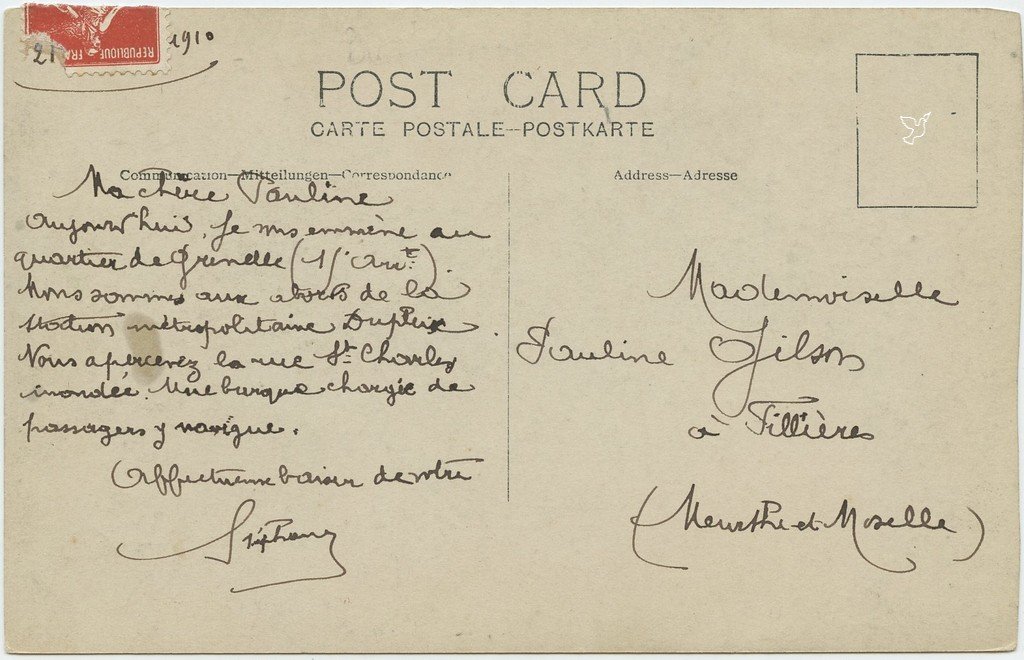 REPUBLIQUE FRA
21
1910
POST CARD
CARTE POSTALE–POSTKARTE
Communication–Mitteilungen–Correspondance
Address–Adresse
Ma chère Pauline
Aujourd'hui, je vous emmène au
quartier de Grenelle (15e Arr.t).
Nous sommes aux abords de la
station métropolitaine Dupleix.
Vous apercevez la rue St Charles
inondée. Une barque chargée de
passagers y navigue.
Affectueux baiser de votre
Stéphane
Mademoiselle
Pauline Gilson
à Fillières
(Meurthe et Moselle)